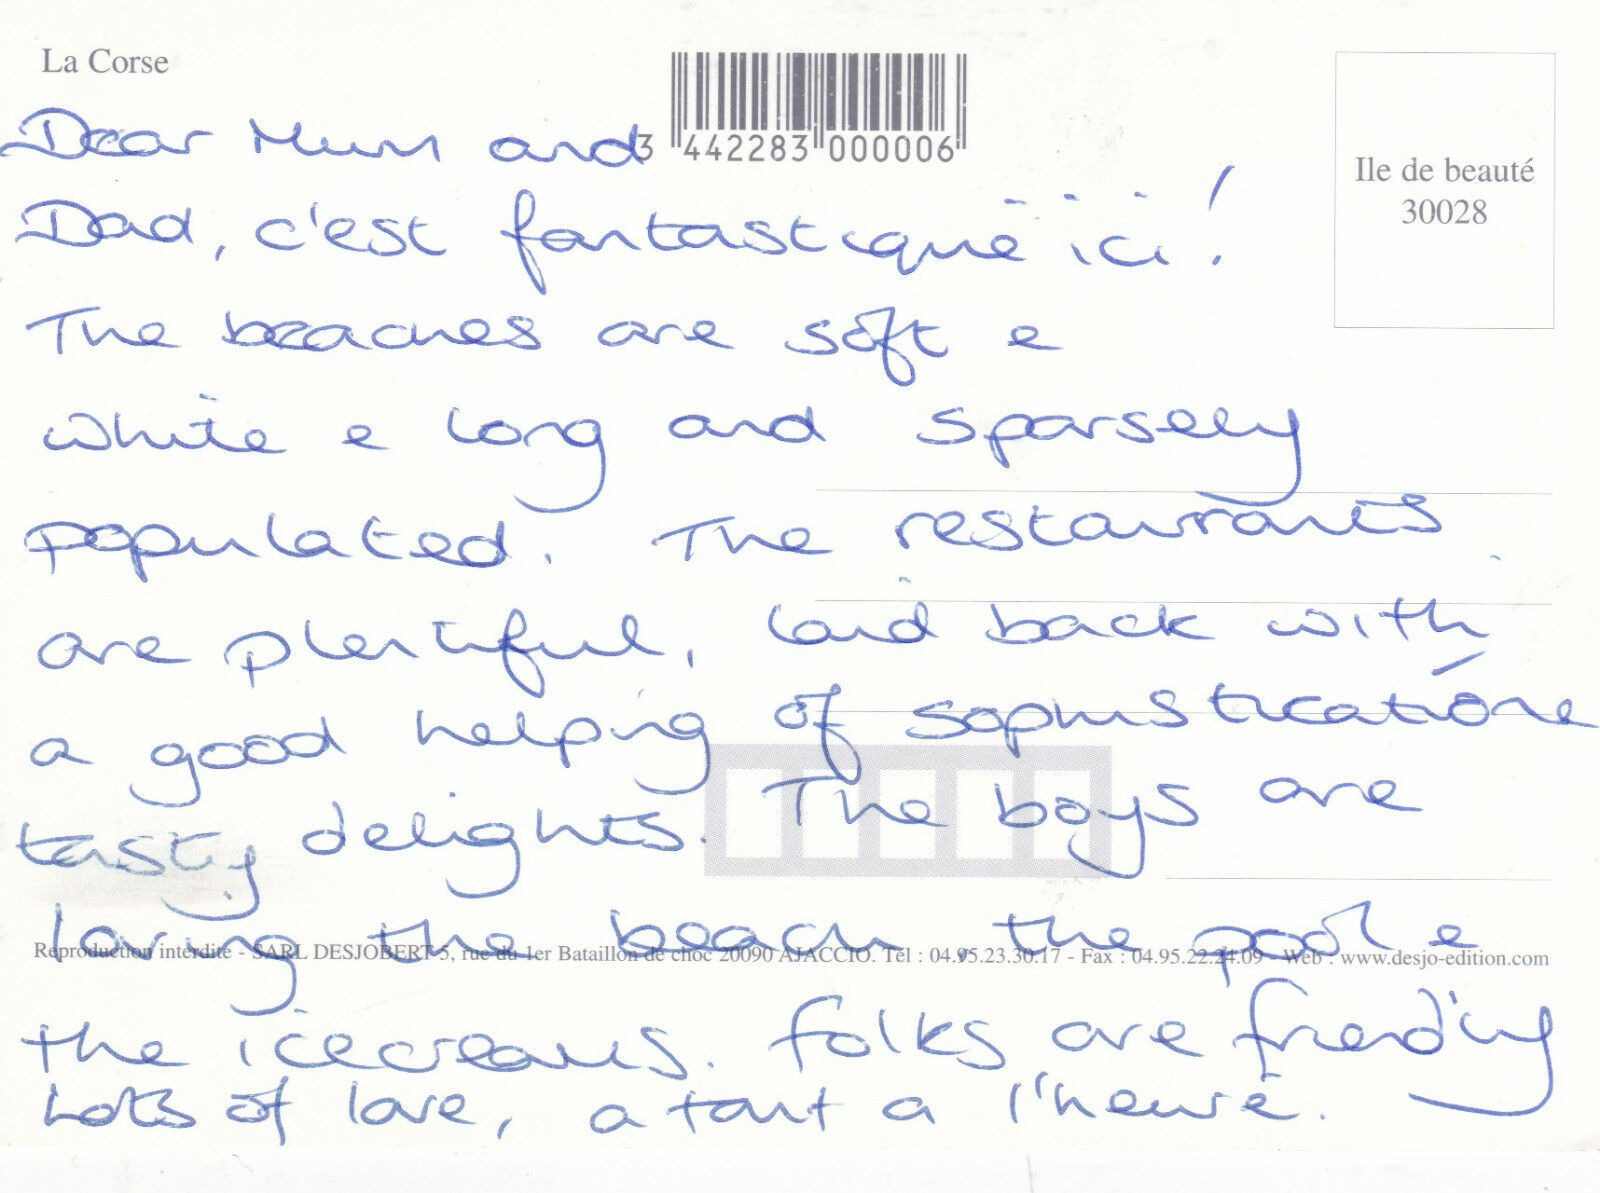 La Corse
3 442283 000006
Ile de beauté
30028
Dear Mum and
Dad, c'est fantastique ici!
The beaches are soft e
white e long and sparsely
populated. The restaurants
are plentiful, laid back with
a good helping of sophistication e
tasty delights. The boys are
loving the beach the pool e
Reproduction interdite - SARL DESJOBERT 5, rue du 1er Bataillon de choc 20090 AJACCIO. Tél : 04.95.23.30.17 - Fax : 04.95.22.24.09 - Web : www.desjo-edition.com
the icecreams. Folks are friendly
Lots of love, a tant a l'heure.